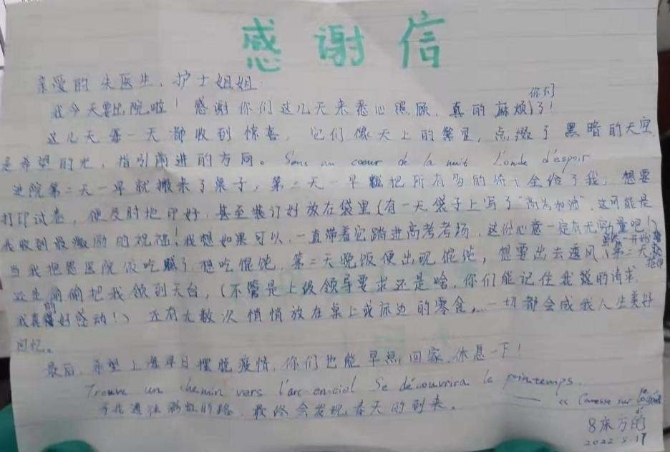 感谢信
亲爱的 医生、护士姐姐
我今天要出院啦！感谢你们这几天来悉心照顾，真的麻烦你们了！
这几天每一天都收到惊喜，它们像天上的繁星，点缀了黑暗的天空
是希望的光，指引前进的方向。Sens au coeur de la nuit l'onde d'espoir
进院第二天一早就搬来了桌子，第二天一早 把所有 的 全给了我，想要
打印试卷，便及时地印好，甚至装订好放在袋里（有一天袋子上写了“高考加油”，这可能是
我收到最激励的祝福！我想如果可以，一直带着它踏进高考考场，这份心意一定有无穷 量吧！）
当我抱怨医院饭吃腻了想吃馄饨，第二天晚饭便出现馄饨，想要出去透风，第二天
医生偷偷把我领到天台，（不管是上级领导要求还是啥，你们能记住我 的请求
我真的好感动！）还有无数次悄悄放在桌上或床边的零食，一切都会成我人生美好
回忆。
最后，希望上海早日摆脱疫情，你们也能早点回家，休息一下！
Trouve un chemin vers l'arc-en-ciel Se découvrira le printemps.
寻找通往彩虹的路，最终会发现春天的到来。 —— «Caresse sur l'océan»
8床方
2022.5.17